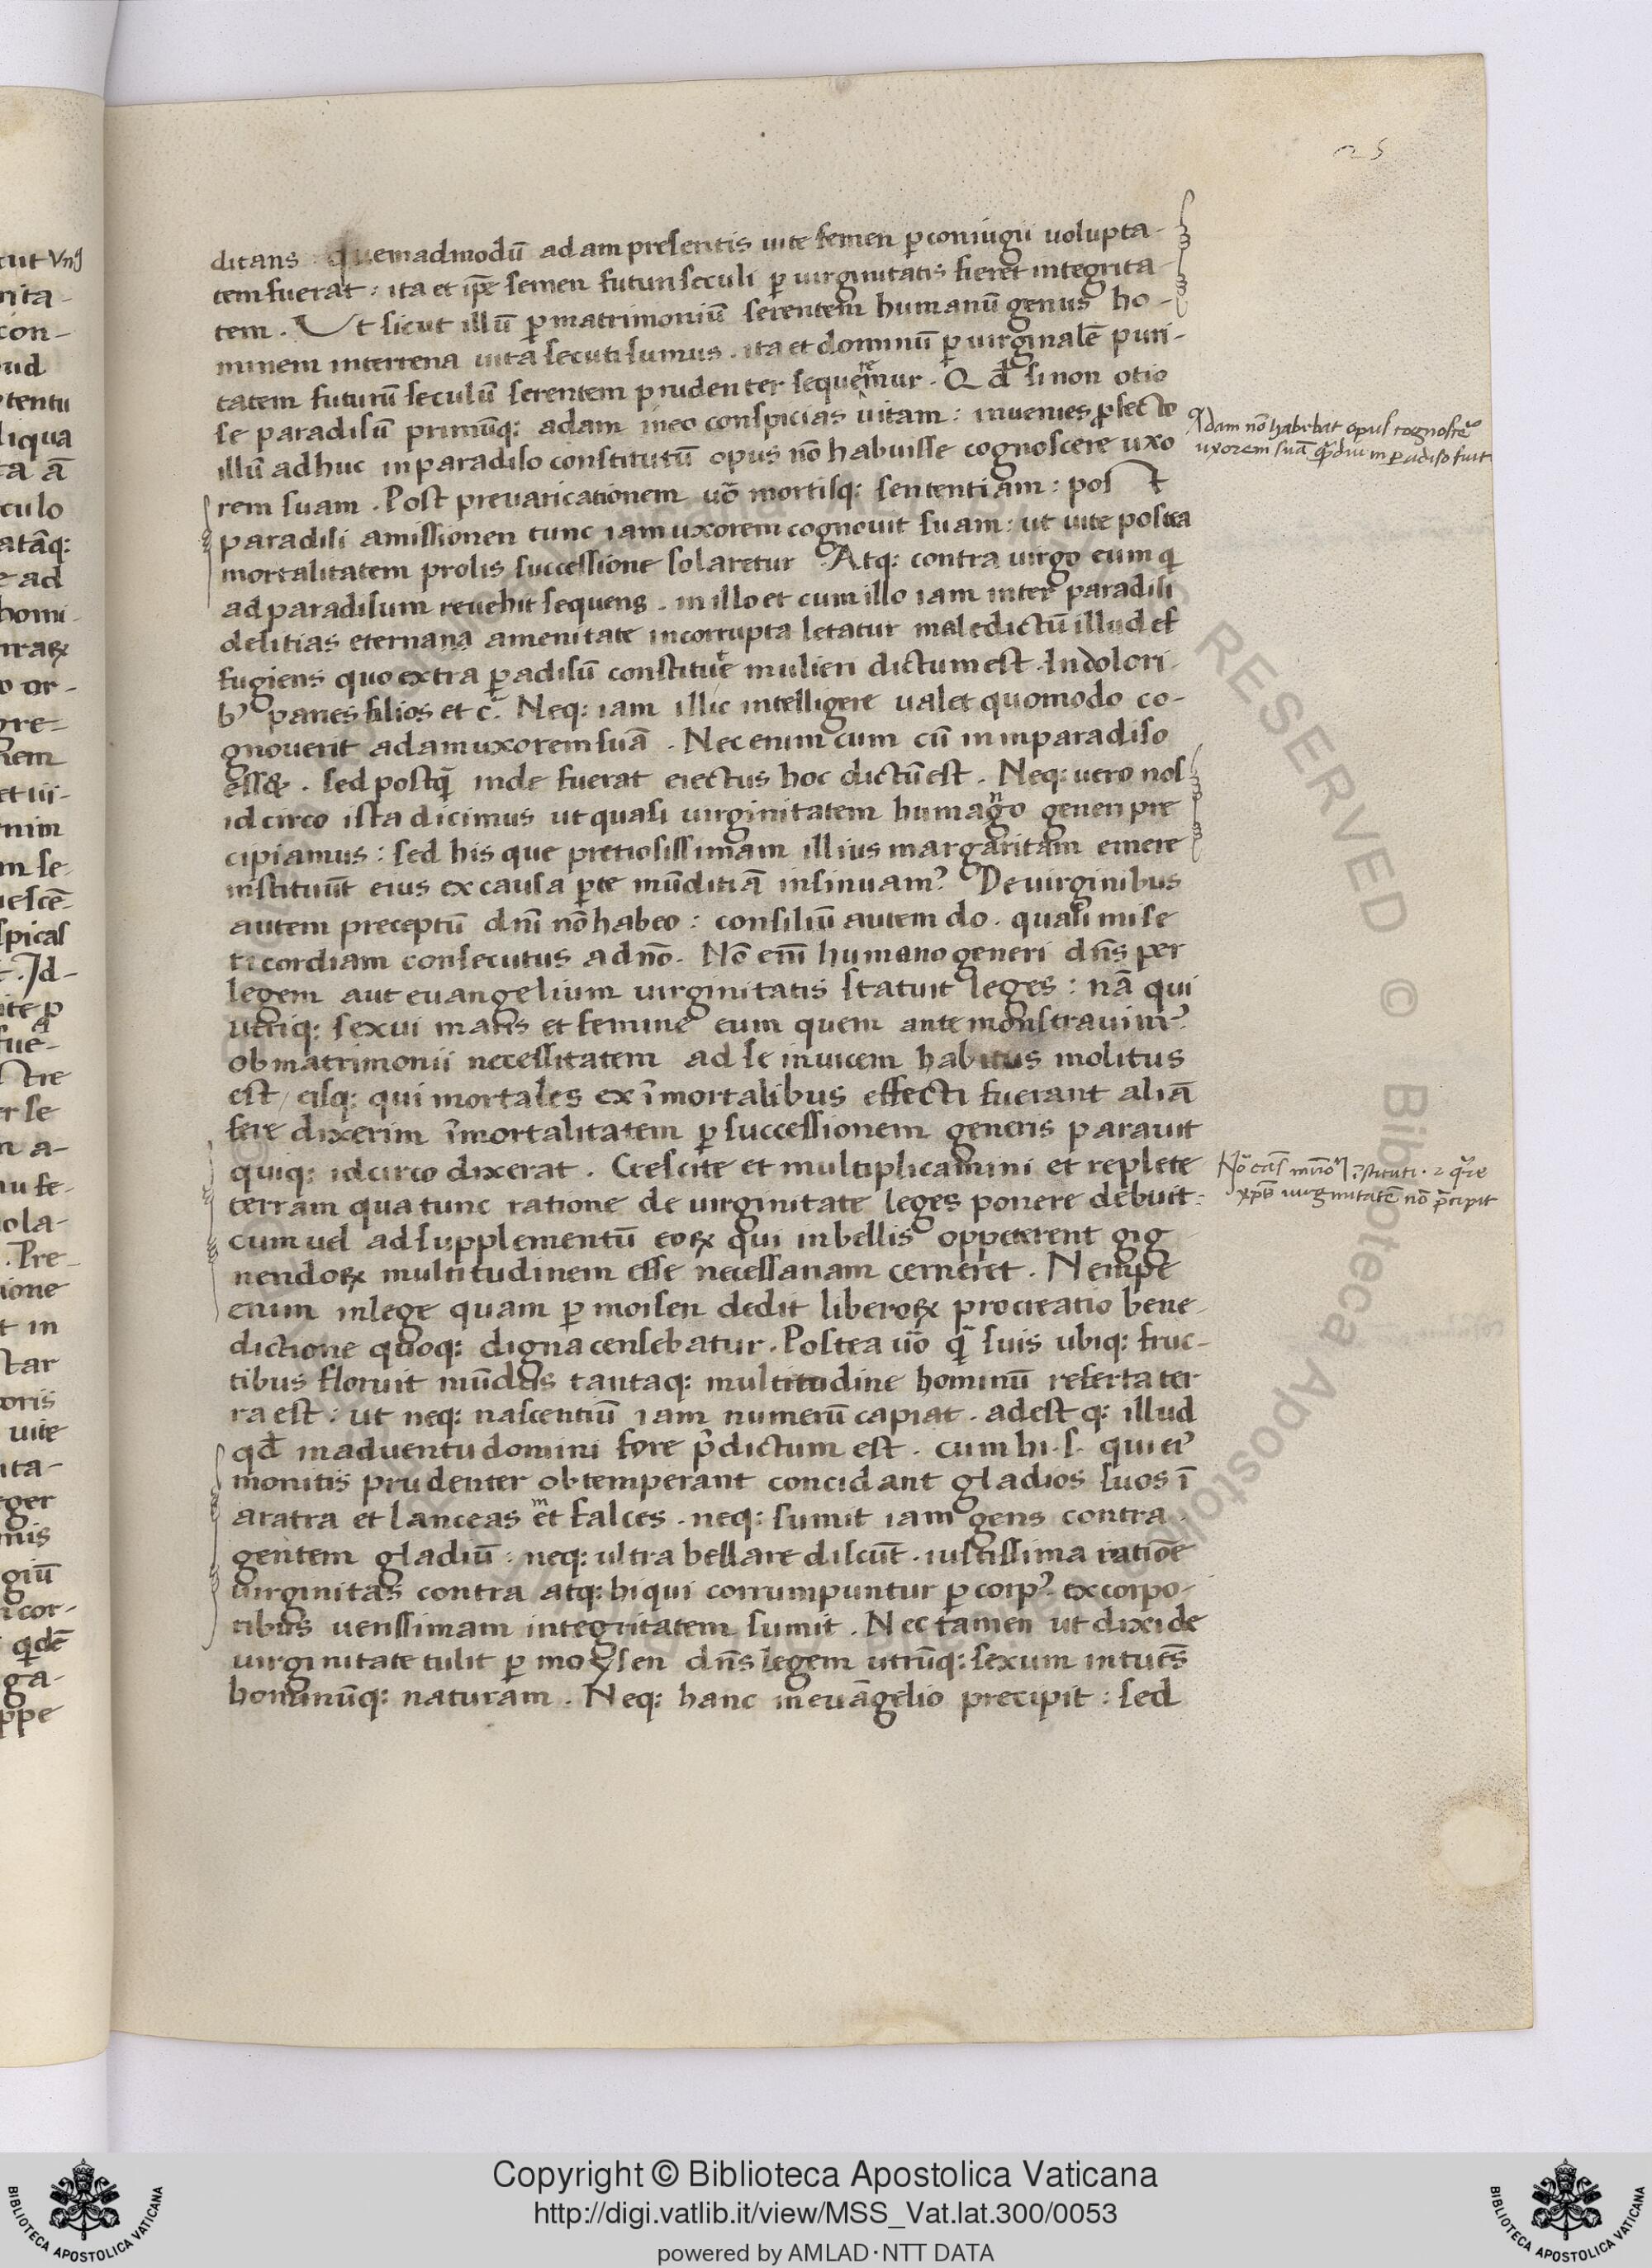 25
ditans quemadmodū adam presentis uite semen ꝑ coniugii uolupta-
tem fuerat: ita et ip̄e semen futuri seculi ꝑ uirginitatis fieret integrita-
tem. Ut sicut illū ꝑ matrimoniū serentem humanū genus ho-
minem interrena uita secuti sumus. ita et dominū ꝑ uirginalē puri-
tatem futurū seculū serentem prudenter sequemur. Qđ si non otio
se paradisū primūq: adam ineo conspicias uitam: inuenies ꝓfecto
illū adhuc inparadiso constitutū opus nō habuisse cognoscere uxo
rem suam. Post preuaricationem uō mortisq: sententiam: post
paradisi amissionen tunc iam uxorem cognouit suam: ut uite postea
mortalitatem prolis successione solaretur. Atq: contra uirgo eum q
ad paradisum reuehit sequens. in illo et cum illo iam inter paradisi
delitias eternana amenitate incorrupta letatur maledictū illud ef
fugiens quo extra ꝑadisū constitute mulieri dictum est. In dolori
bꝰ paries filios et c̄. Neq: iam illic intelligere ualet quomodo co-
gnouerit adam uxorem suā. Nec enim cum cū in inparadiso
ess&. sed postq̄ inde fuerat eiectus hoc dictū est. Neq: uero nos
idcirco ista dicimus ut quasi uirginitatem humano generi pre
cipiamus: sed his que pretiosissimam illius margaritam emere
instituūt eius ex causa ꝑte mūditiā insinuamꝰ. De uirginibus
autem preceptū dn̄i nō habeo: consiliū autem do. quasi mise
ricordiam consecutus adn̄o. Nō eni humano generi dn̄s per
legem aut euangelium uirginitatis statuit leges: nā qui
utriq: sexui maris et femine eum quem ante monstrauimꝰ
ob matrimonii necessitatem ad se inuicem habitus molitus
est, eisq: qui mortales ex īmortalibus effecti fuerant aliā
fere dixerim īmortalitatem ꝑ successionem generis parauit
quiq: idcirco dixerat. Crescite et multiplicamini et replete
terram qua tunc ratione de uirginitate leges ponere debuit:
cum uel ad supplementū eoꝝ qui inbellis oppeterent gig
nendoꝝ multitudinem esse necessariam cerneret. Nempe
enim inlege quam ꝑ moisen dedit liberoꝝ procreatio bene-
dictione quoq: digna censebatur. Postea uō q̄ suis ubiq: fruc-
tibus floruit mūdus tantaq: multitudine hominū referta ter
ra est: ut neq: nascentiū iam numerū capiat. adest q: illud
qđ inaduentu domini fore p̄dictum est. cum hi. s. qui eiꝰ
monitis prudenter obtemperant concidant gladios suos ī
aratra et lanceas et falces. neq: sumit iam gens contra
gentem gladiū: neq: ultra bellare discūt. iustissima ratiōe
uirginitas contra atq: hi qui corrumpuntur ꝑ corpꝰ ex corpo-
ribus uerissimam integritatem sumit. Nec tamen ut dixi de
uirginitate tulit ꝑ moysen dn̄s legem utrūq: sexum intuēs
hominūq: naturam. Neq: hanc ineuāgelio precipit: sed
Adam nō habebat opus cognoscē
uxorem suā q̄diu in ꝑadiso fuit
xp̄s uirginitatē nō p̄cipit
Copyright © Biblioteca Apostolica Vaticana
http://digi.vatlib.it/view/MSS_Vat.lat.300/0053
powered by AMLAD·NTT DATA
BIBLIOTECA APOSTOLICA VATICANA
BIBLIOTECA APOSTOLICA VATICANA